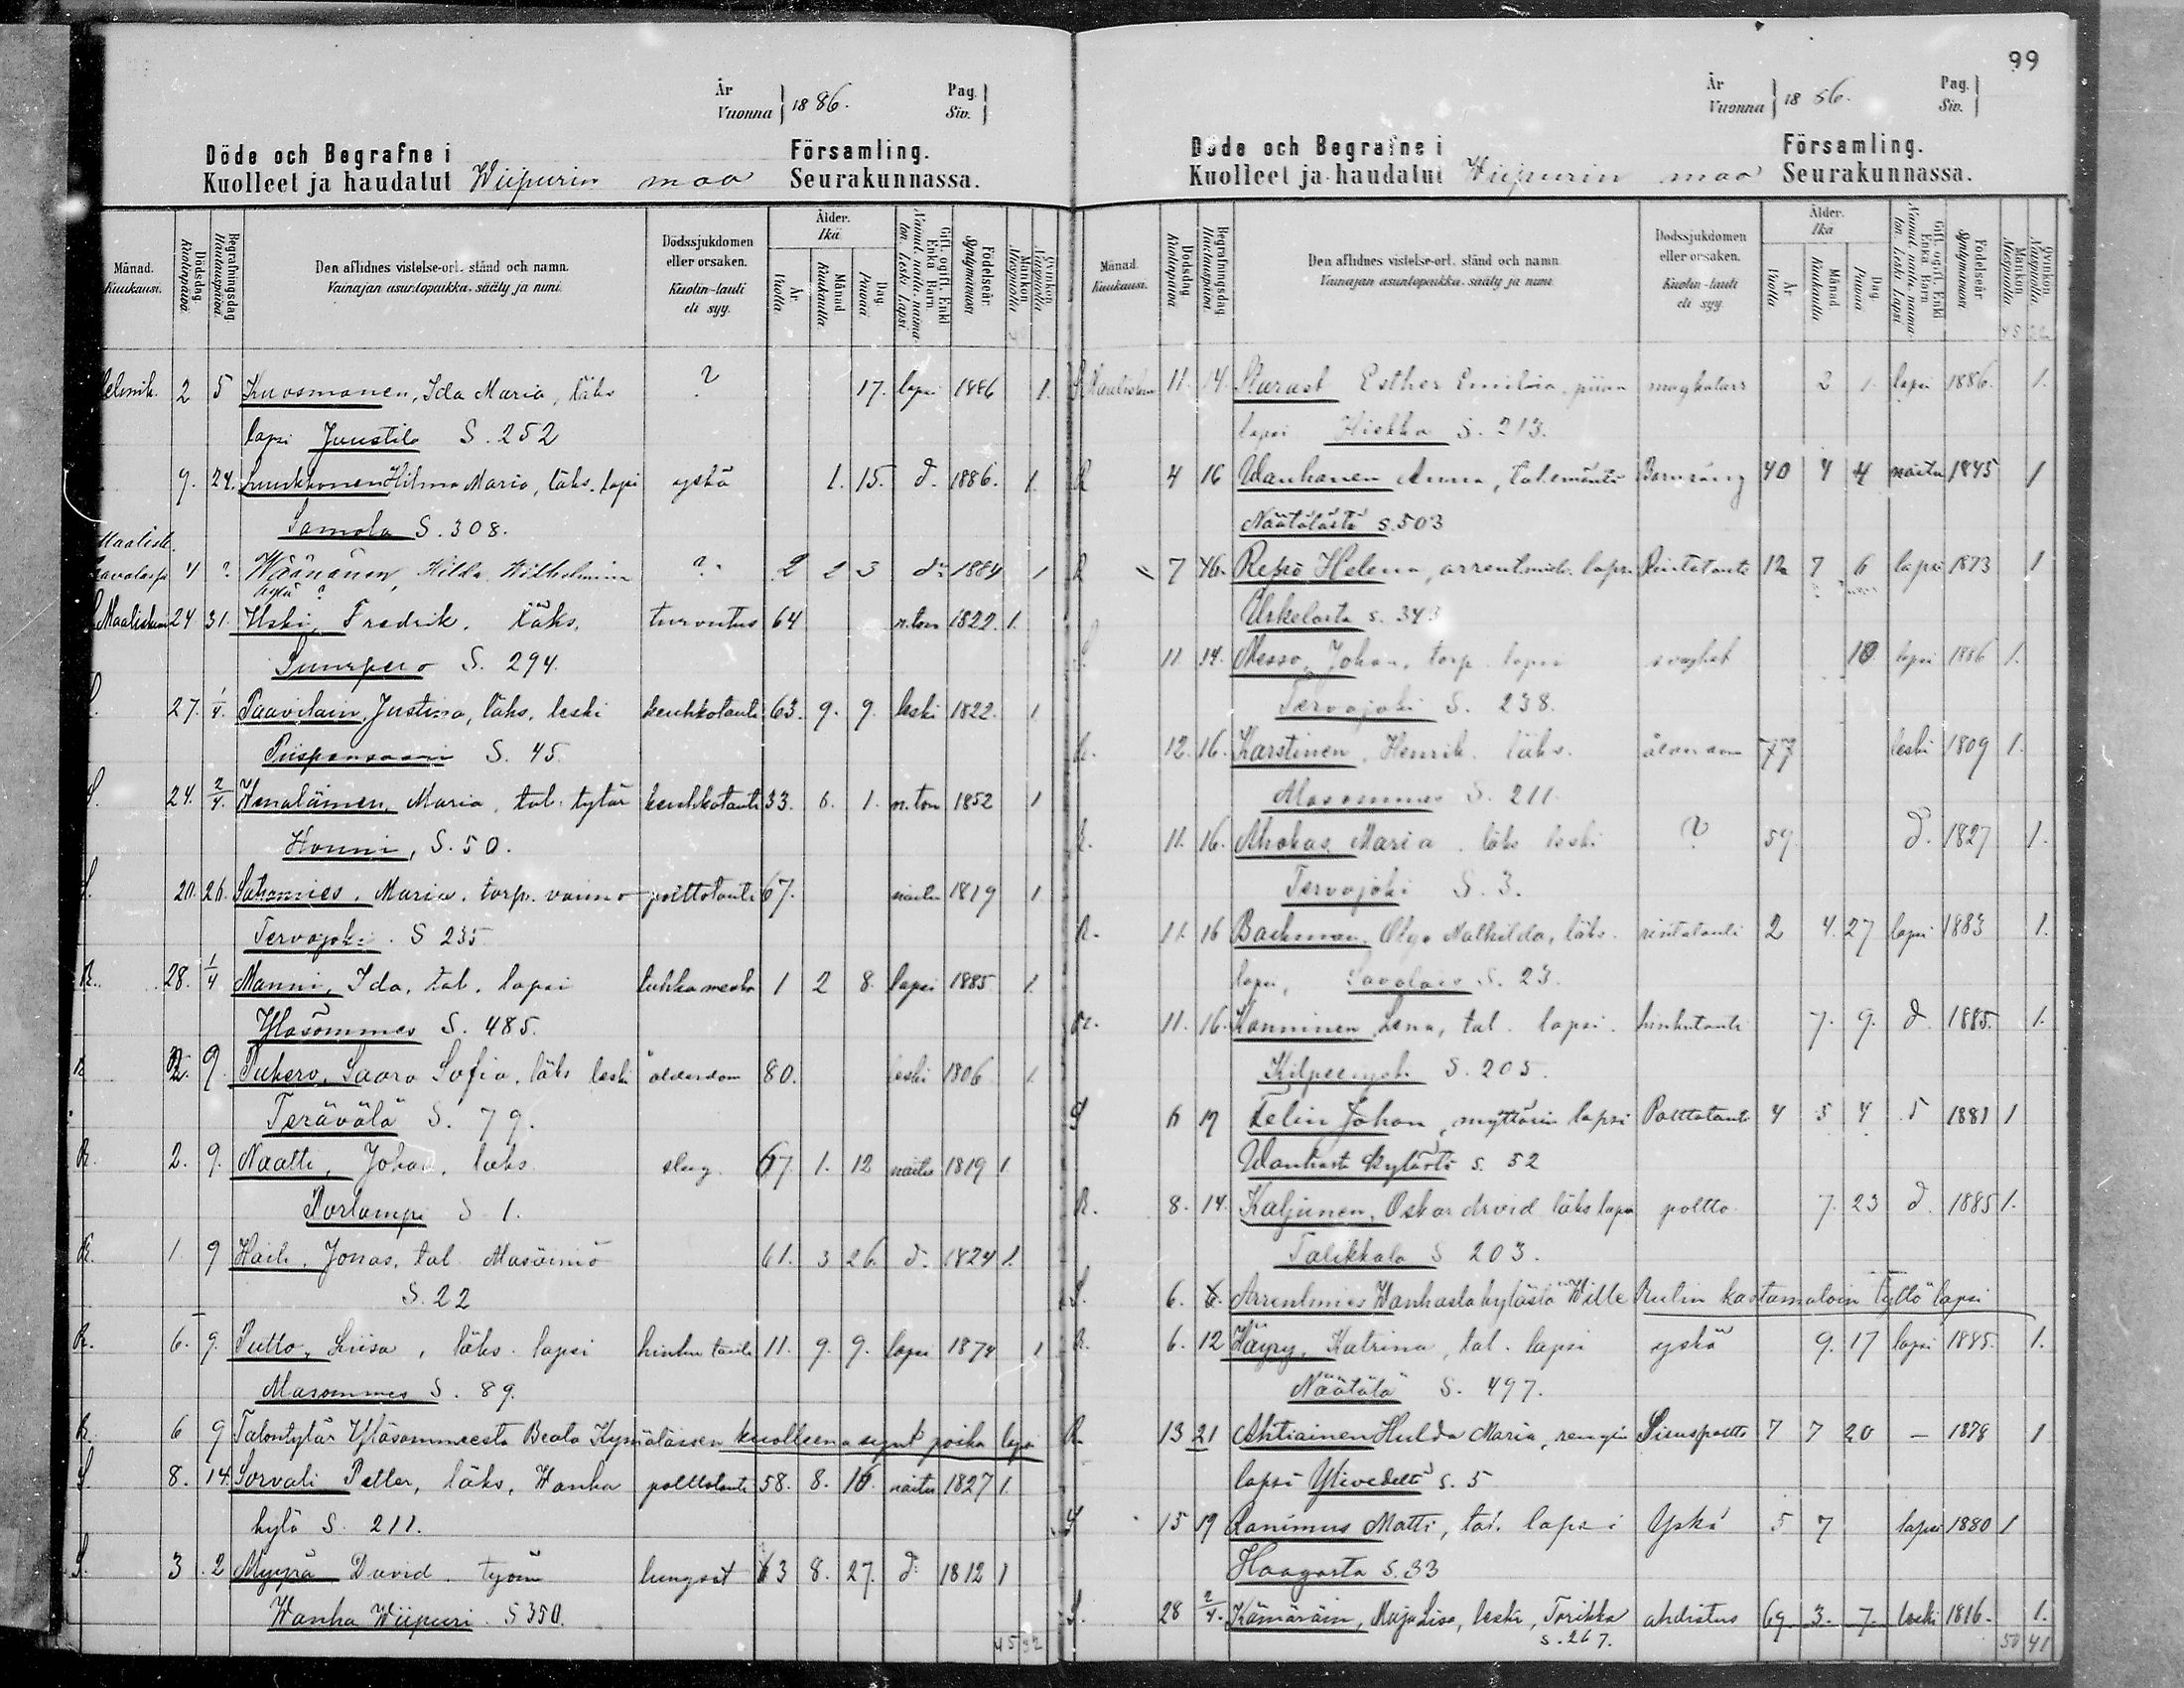 År
Vuonna 1886. Pag.
Siv.
Döde och Begrafne i Församling.
Kuolleet ja haudatut Wiipurin maa Seurakunnassa.
Månad. Kuukausi. Dödsdag Kuolinpäivä Begrafningsdag Hautauspäivä Den aflidnes vistelse-ort, stånd och namn. Vainajan asuntopaikka, sääty ja nimi. Dödssjukdomen eller orsaken. Kuolin-tauti eli syy. Ålder. Ikä År Vuotta Månad Kuukautta Dag Päivää Gift, ogift, Enkl. Enka Barn. Födelseår Syntymävuosi Mänkön Miespuolia Qvinkön
Helmik. 2 5 Kuosmonen, Ida Maria, läks ? 17. lapsi 1886 1.
lapsi Juustila S. 252
9. 24. Luukkonen Hilma Maria, läks. lapsi yskä 1. 15. d. 1886. 1.
Samola S. 308.
Maalisk.
4 ? Wäänänen, Hilda Wilhelmina ? 2 2 3 d:o 1884 1
kylä ?
Maaliskuu 24 31. Uski, Fredrik. läks. turvotus 64 n.ton 1822. 1.
Suurpero S. 294.
27. 1/4. Paavilain, Justina, läks. leski keuhkotauti 63. 9. 9. leski 1822. 1
Piispansaari S. 45.
S. 24. 2/4. Wenäläinen, Maria, tal. tytär keuhkotauti 33. 6. 1. n.ton 1852 1
Honni, S. 50.
S. 20. 26. Satamies, Maria. torp. vaimo polttotauti 67. naitu 1819 1
Tervajoki. S 235
R. 28. 1/4 Manni, Ida, tal. lapsi tuhka 1 2 8. lapsi 1885 1.
Yläsommes S. 485.
R 2. 9. Pukero, Saara Sofia, läks leski ålderdom 80. leski 1806 1.
Terävälä S. 79.
R. 2. 9. Naatti, Johan, läks. slag. 67 1. 12 naitu 1819 1.
Porlampi S. 1.
R. 1. 9 Häih. Jonas. tal. 61. 3 26. d. 1824 1.
S. 22
R. 6. 9. Putto, Liisa, läks. lapsi hinku tauti 11. 9. 9. lapsi 1874 1
Alasommes S. 89.
R. 6 9 Talontytär Yläsommeesta Beata Kymäläisen kuolleena synt. poika lapsi
S. 8. 14. Sorvali Petter, läks, Wanha polttotauti 58. 8. 16. naitu 1827 1.
kylä S. 211.
S. 3 2 Myyrä David. työm lungsot 63 8. 27. d: 1812 1
Wanha Wiipuri. S 350.
45 32
99
År
Vuonna 1886. Pag.
Siv.
Döde och Begrafne i Församling.
Kuolleet ja haudatut Wiipurin maa Seurakunnassa.
Månad. Kuukausi. Dödsdag Kuolinpäivä Begrafningsdag Hautauspäivä Den aflidnes vistelse-ort, stånd och namn. Vainajan asuntopaikka, sääty ja nimi. Dödssjukdomen eller orsaken. Kuolin-tauti eli syy. Ålder. Ikä År Vuotta Månad Kuukautta Dag Päivää Gift, ogift, Enkl. Enka Barn. Födelseår Syntymävuosi Mänkön Miespuolia Qvinkön
45 32
S Maaliskuu 11. 14. Esther Emilia, piian magkatarr 2 1. lapsi 1886. 1.
lapsi Hiekka S. 213.
R 4 16 Wanhanen Anna, tal.emäntä Barnsäng 40 4 4 naitu 1845 1
Näätälästä s. 503
R 7 16. Repo Helena, arrentmiehen lapsi Rintatauti 12 7 6 lapsi 1873 1
Urkelasta s. 343
S. 11 14. Messo, Johan, torp. lapsi svaghet 10 lapsi 1886 1.
Tervajoki S. 238.
R. 12. 16. Karstinen, Henrik. läks. ålderdom 77 leski 1809 1.
Alasommes S. 211.
11. 16. Ahokas, Maria. läks leski ? 59 d. 1827 1.
Tervajoki S. 3.
R. 11. 16 Backman, Olga Mathilda, läks. rintatauti 2 4. 27 lapsi 1883 1.
lapsi, S. 23.
R. 11. 16. Lena, tal. lapsi. hinkutauti 7. 9. d. 1885. 1.
S. 205.
S 6 19 Telin Johan, myllärin lapsi Polttotauti 4 5 4 d 1881 1
Wanhasta Kylästä s. 52
R. 8. 14. Kaljunen, Oskar Arvid läks lapsi poltto 7. 23 d. 1885 1.
Talikkala S 203.
S. 6. 6. Arrentmies Wanhasta kylästä Wille Rulin kastamatoin tyttö lapsi
R. 6. 12 Häyry, Katrina, tal. lapsi yskä 9. 17 lapsi 1885. 1.
Näätälä S. 497.
R. 13 21 Ahtiainen Hulda Maria, rengin Sisuspoltto 7 7 20 – 1878 1
lapsi Ylivedeltä s. 5
S 15 19 Ranimus Matti, tal. lapsi Yskä 5 7 lapsi 1880 1
Haagasta S. 33
S. 28 2/4. Kämäräin, Maja Lisa, leski, Torikka ahdistus 69 3. 7. leski 1816. 1.
S. 267.
50 41